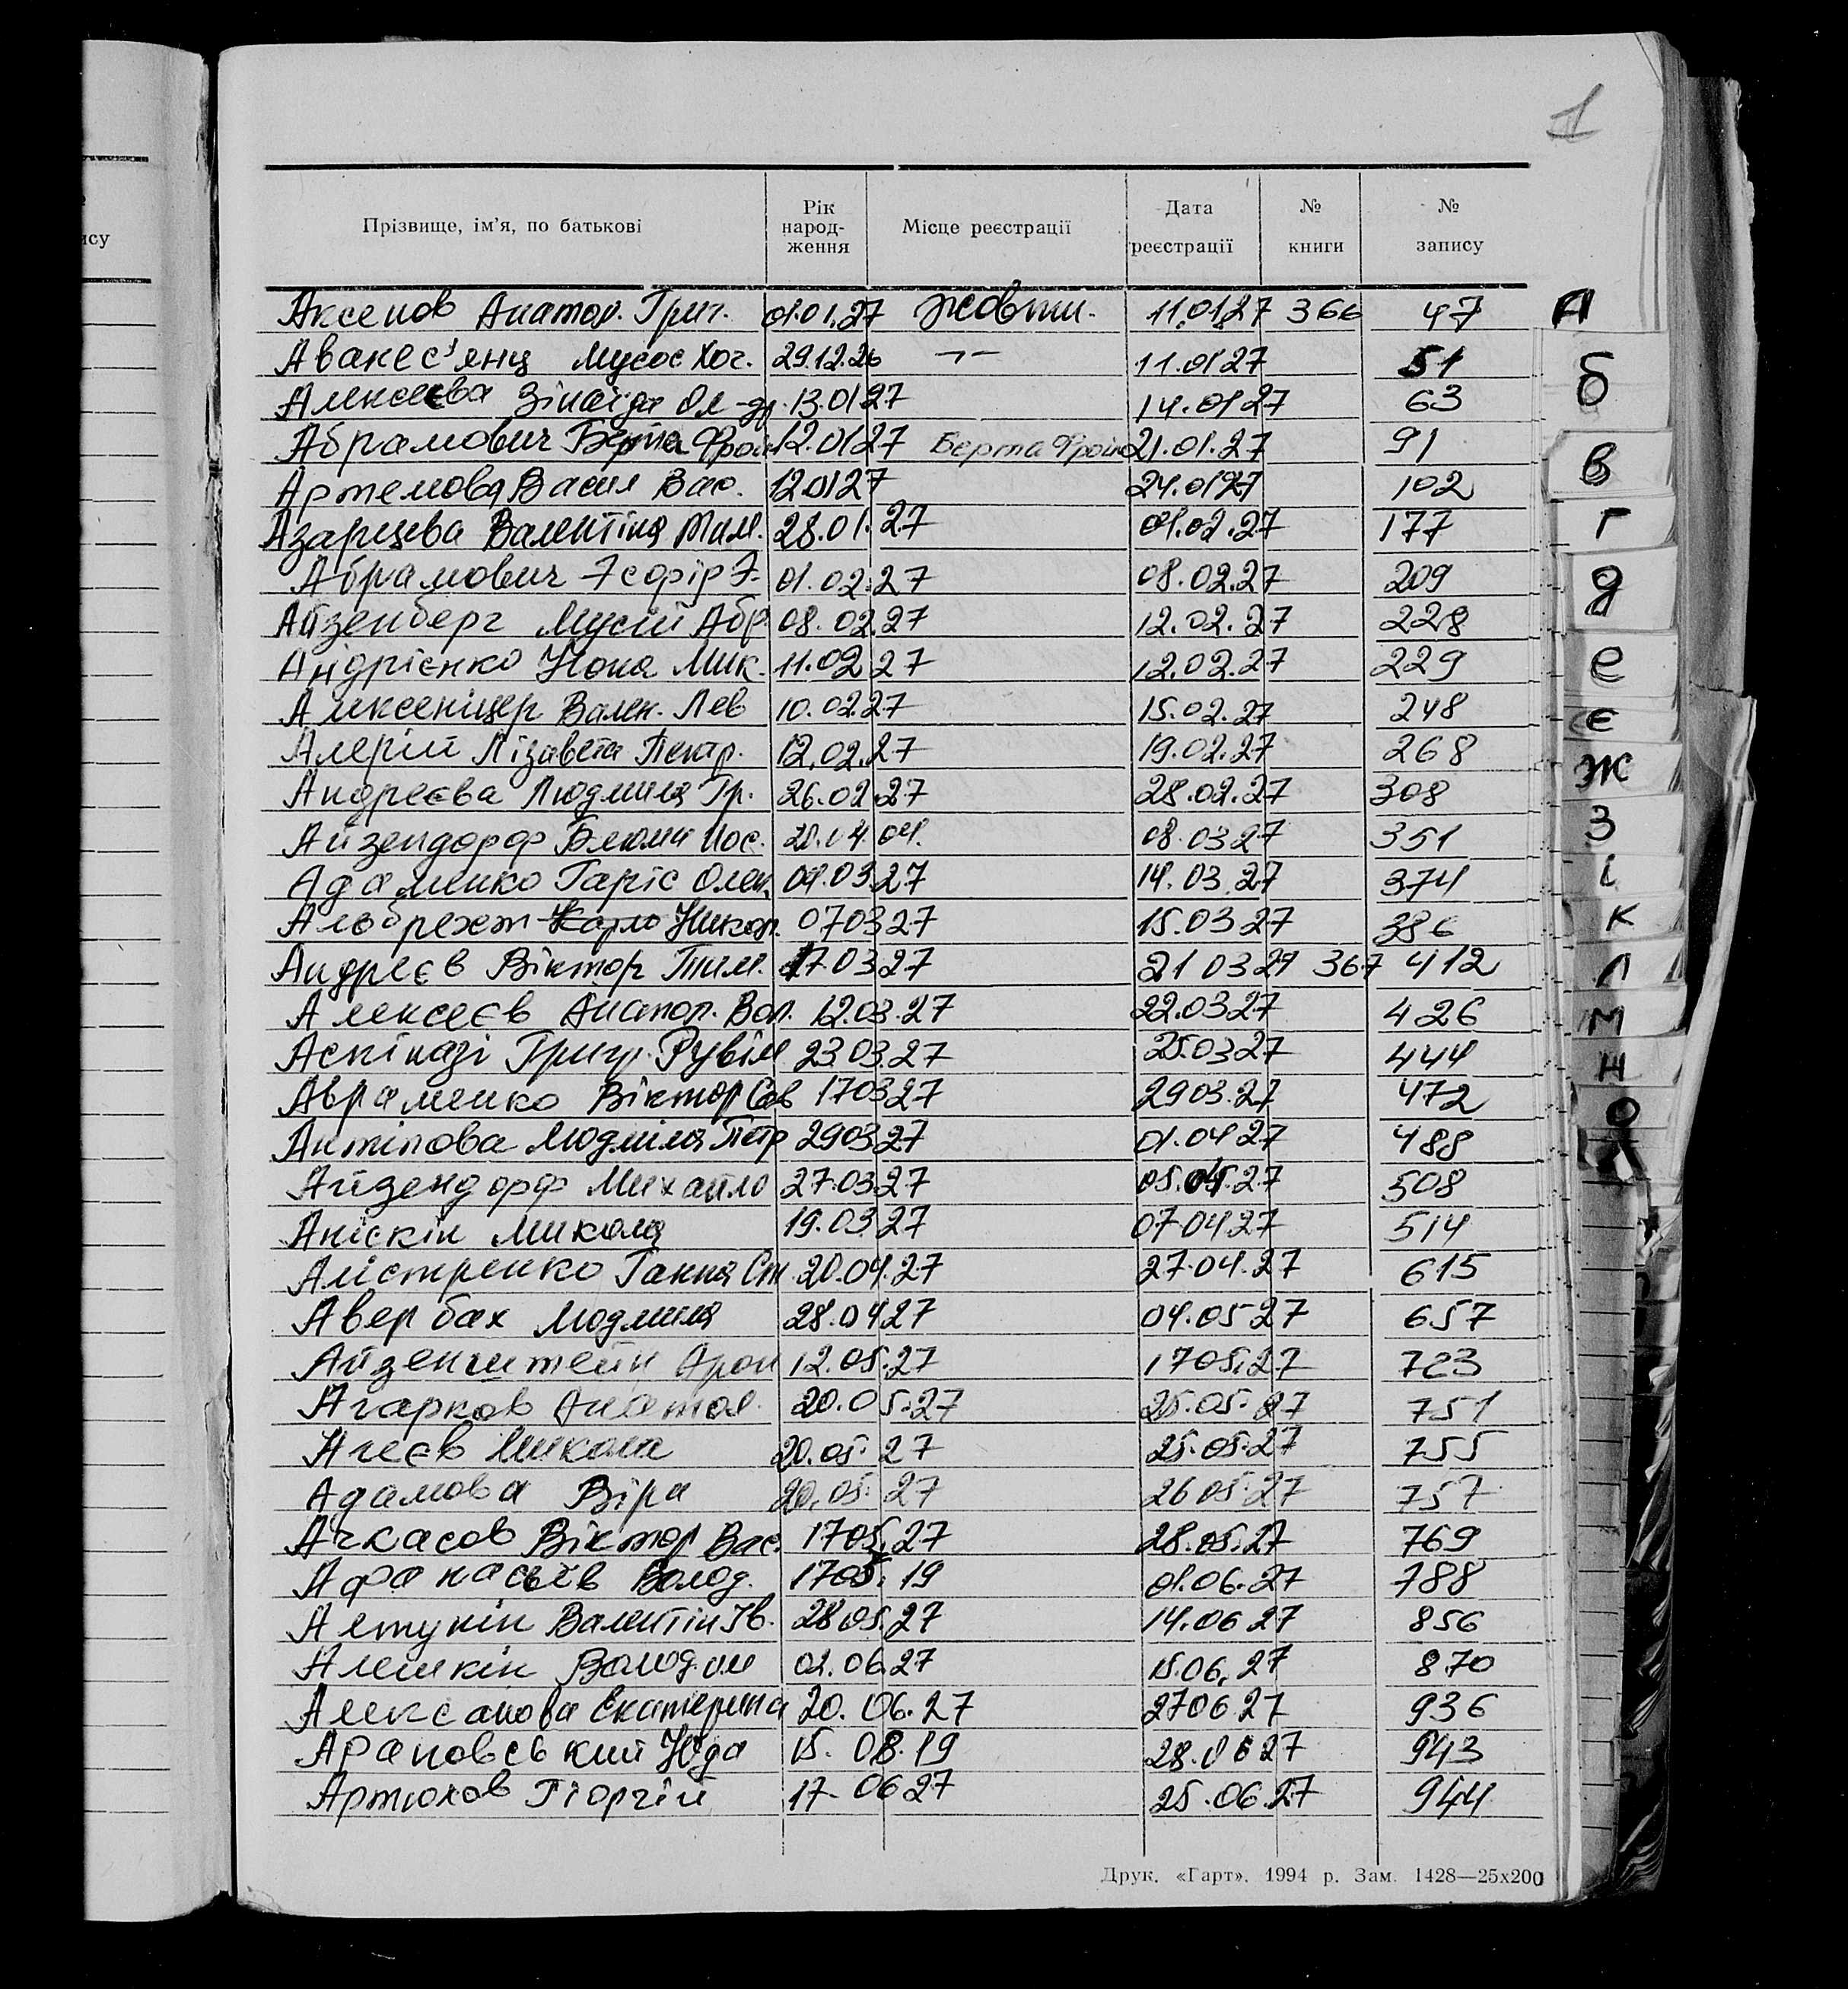 1
ису
Прізвище, ім'я, по батькові Рік народ-ження Місце реєстрації Дата реєстрації № книги № запису
Аксенов Анатол. Григ. 01.01.27 Жовтн. 11.01.27 366 47
Авакес'янц Мусос Хач. 29.12.26 -"- 11.01.27 51
Алексеєва Зінаїда Ол-др. 13.01.27 14.01.27 63
Абрамович Берта Фрои 12.01.27 Берта Фрои 21.01.27 91
Артемова Васил Вас. 12.01.27 24.01.27 102
Азарцева Валентіна Тим. 28.01.27 01.02.27 177
Абрамович Эсфір Э. 01.02.27 08.02.27 209
Айзенберг Мусій Абр. 08.02.27 12.02.27 228
Андрієнко Нона Мик. 11.02.27 12.02.27 229
Алексеніцер Вален. Лев 10.02.27 15.02.27 248
Алерій Лізавета Пекар. 12.02.27 19.02.27 268
Андреєва Людмила Гр. 26.02.27 28.02.27 308
Айзендорф Блюма Иос. 20.04.04. 08.03.27 351
Адаменко Гаріс Олек. 04.03.27 14.03.27 374
Альбрехт Карло Никол. 07.03.27 15.03.27 386
Андреєв Віктор Тим. 17.03.27 21.03.27 367 412
Алексеєв Анатол. Вол. 12.03.27 22.03.27 426
Аскіназі Григ. Рувім 23.03.27 25.03.27 444
Авраменко Віктор Сав 17.03.27 29.03.27 472
Антіпова Людміла Петр 29.03.27 01.04.27 488
Айзендорф Михайло 27.03.27 05.04.27 508
Аніскін Микола 19.03.27 07.04.27 514
Алістренко Ганна Ст. 20.04.27 27.04.27 615
Авербах Людмила 28.04.27 04.05.27 657
Айзенштейн Арон 12.05.27 17.05.27 723
Агарков Анатол. 20.05.27 25.05.27 751
Агеєв Микола 20.05.27 25.05.27 755
Адамова Віра 20.05.27 26.05.27 757
Ачкасов Віктор Вас. 17.05.27 28.05.27 769
Афанасьєв Волод. 17.05.19 01.06.27 788
Алтунін Валентін Ів. 28.05.27 14.06.27 856
Алешкін Володим 02.06.27 15.06.27 870
Алексанова Екатерина 20.06.27 27.06.27 936
Арановський Юда 15.08.19 28.06.27 943
Артюхов Гіоргій 17.06.27 25.06.27 944
Друк. «Гарт». 1994 р. Зам. 1428—25х200
А
Б
В
Г
Д
Е
Є
Ж
З
І
К
Л
М
Н
О